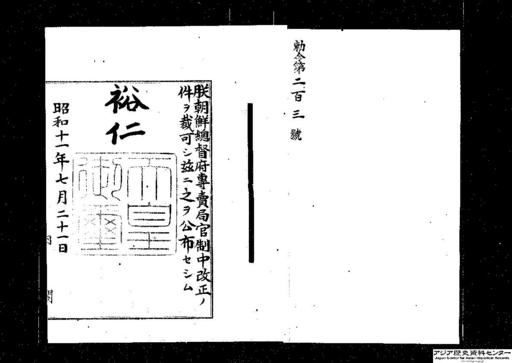 勅令第二百三號
朕朝鮮總督府專賣局官制中改正ノ
件ヲ裁可シ茲ニ之ヲ公布セシム
裕仁
天皇御璽
昭和十一年七月二十一日
閣
アジア歴史資料センター
Japan Center for Asian Historical Records